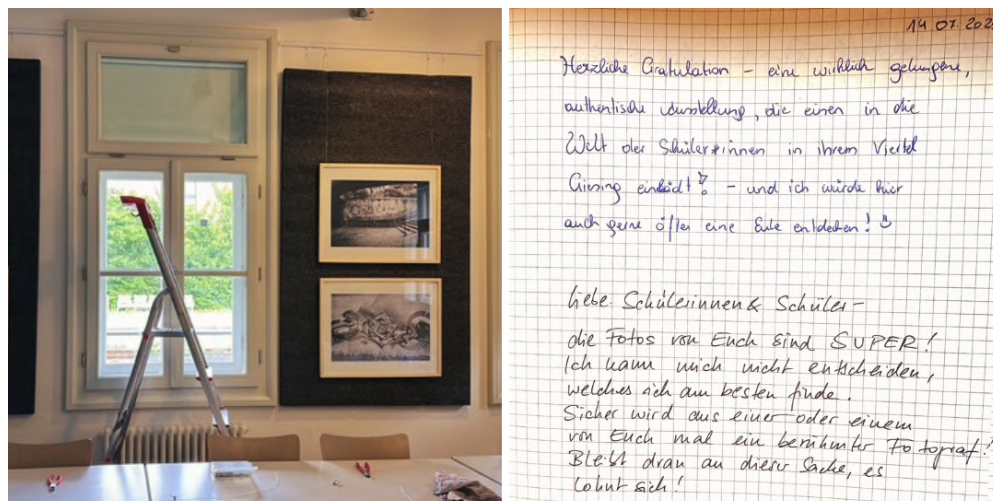 14 07 202
Herzliche Gratulation – eine wirklich gelungene,
authentische Ausstellung, die einen in die
Welt der Schüler*innen in ihrem Viertel
Giesing einlädt! – und ich würde hier
auch gerne öfter eine Eule entdecken!
Liebe Schülerinnen & Schüler –
die Fotos von Euch sind SUPER!
Ich kann mich nicht entscheiden,
welches ich am besten finde.
Sicher wird aus einer oder einem
von Euch mal ein berühmter Fotograf!
Bleibt dran an dieser Sache, es
lohnt sich!